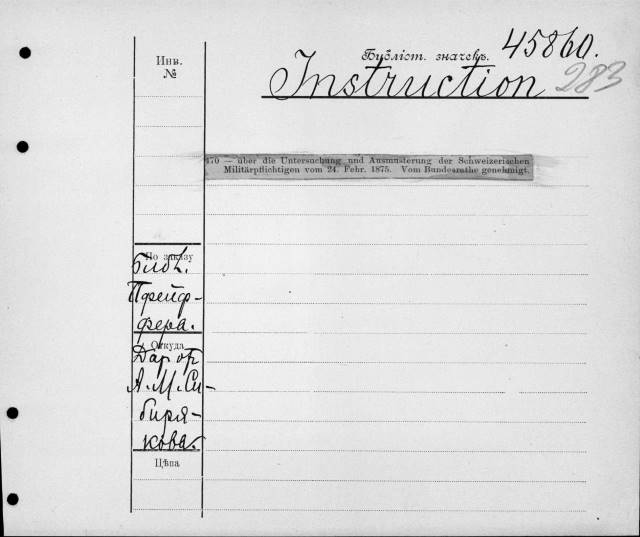 Библіот. значекъ. 45860.
Инв.
№
Instruction 283
470 — über die Untersuchung und Ausmusterung der Schweizerischen
Militärpflichtigen vom 24. Febr. 1875. Vom Bundesrathe genehmigt.
По заказу
Библ.
Пфейф-
фера.
Откуда
Дар от
А. М. Си-
биря-
кова.
Цѣна